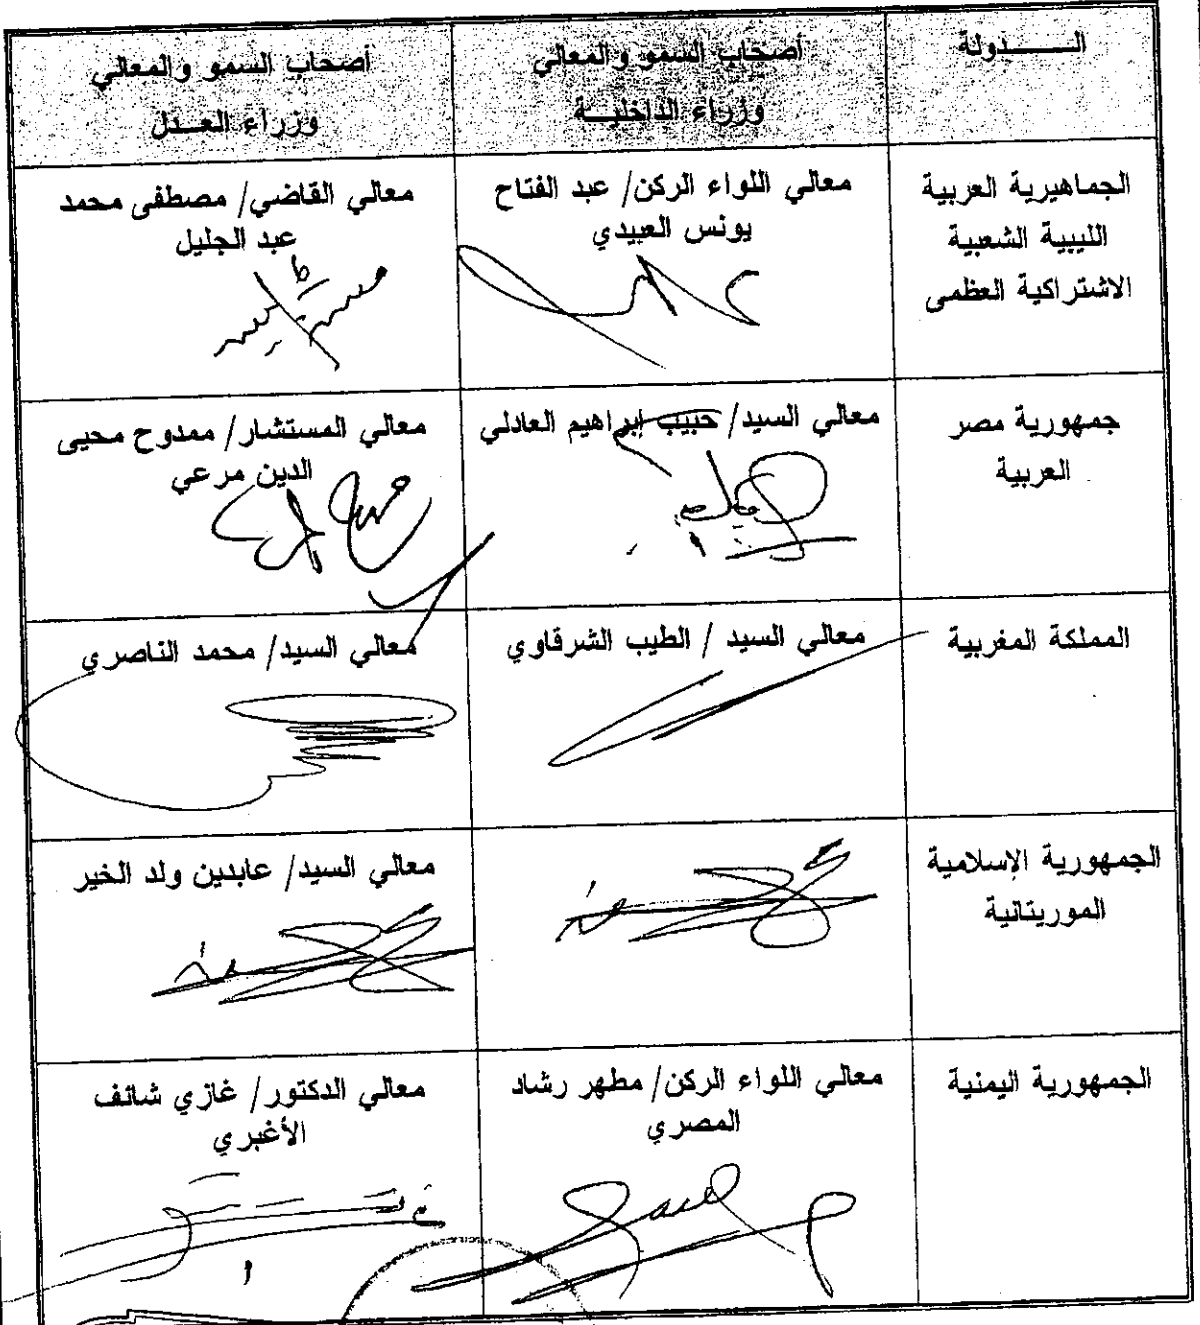 الســـــدولة
أصحاب السمو والمعالي
وزراء الداخليـــة
أصحاب السمو والمعالي
وزراء العـــدل
الجماهيرية العربية
الليبية الشعبية
الاشتراكية العظمى
معالي اللواء الركن/ عبد الفتاح
يونس العبيدي
معالي القاضي/ مصطفى محمد
عبد الجليل
جمهورية مصر
العربية
معالي السيد/ حبيب إبراهيم العادلي
معالي المستشار/ ممدوح محيى
الدين مرعي
المملكة المغربية
معالي السيد / الطيب الشرقاوي
معالي السيد/ محمد الناصري
الجمهورية الإسلامية
الموريتانية
معالي السيد/ عابدين ولد الخير
الجمهورية اليمنية
معالي اللواء الركن/ مطهر رشاد
المصري
معالي الدكتور/ غازي شائف
الأغبري